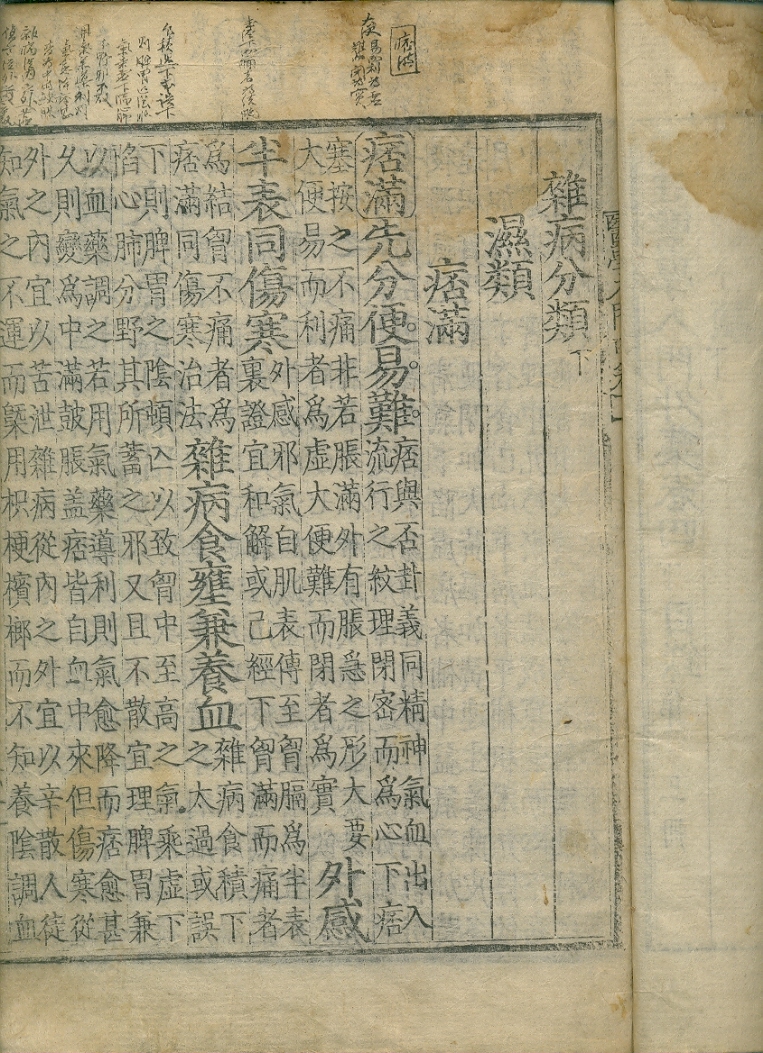 痞滿
雜病分類下
濕類
痞滿
痞滿先分便易難痞與否卦義同精神氣血出入
流行之紋理閉密而為心下痞
塞按之不痛非若脹滿外有脹急之形大要
大便易而利者為虛大便難而閉者為實外感
半表同傷寒外感邪氣自肌表傳至胷膈為半表
裏證宜和解或已經下胷滿而痛者
為結胷不痛者為
痞滿同傷寒治法雜病食壅兼養血雜病食積下
之太過或誤
下則脾胃之陰頓亡以致胷中至高之氣乘虛下
陷心肺分野其所蓄之邪又且不散宜理脾胃兼
以血藥調之若用氣藥導利則氣愈降而痞愈甚
久則變為中滿皷脹盖痞皆自血中來但傷寒從
外之內宜以苦泄雜病從內之外宜以辛散人徒
知氣之不運而槩用枳梗檳榔而不知養陰調血